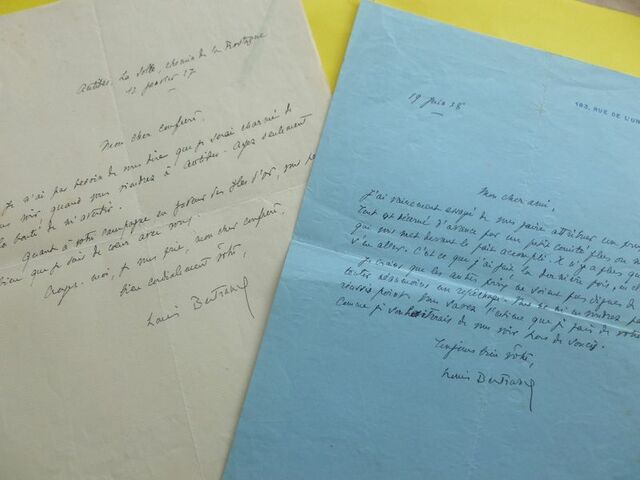 Antibes. La Sotte, chemin de la Rostagne
12 janvier 37
Mon cher confrère,
Je n'ai pas besoin de vous dire que je serai charmé de
vous voir, quand vous viendrez à Antibes. Ayez seulement
la bonté de m'avertir.
Quant à votre campagne en faveur des Îles d'or, vous
bien que je suis de cœur avec vous.
Croyez-moi, je vous prie, mon cher confrère,
bien cordialement vôtre,
Louis Bertrand
19 juin 38
163, RUE DE L'UN
Mon cher ami,
J'ai vainement essayé de vous faire attribuer un
Tout est réglé d'avance par un petit comité plus ou
qui vous met devant le fait accompli. Il n'y a plus
s'en aller. C'est ce que j'ai fait la dernière fois,
Je crains que les autres ne voient pas
tenter néanmoins un repêchage.
réussis point. Vous savez l'estime que je fais de votre
comme je souhaiterais de vous voir hors de soucis.
Toujours bien vôtre,
Louis Bertrand